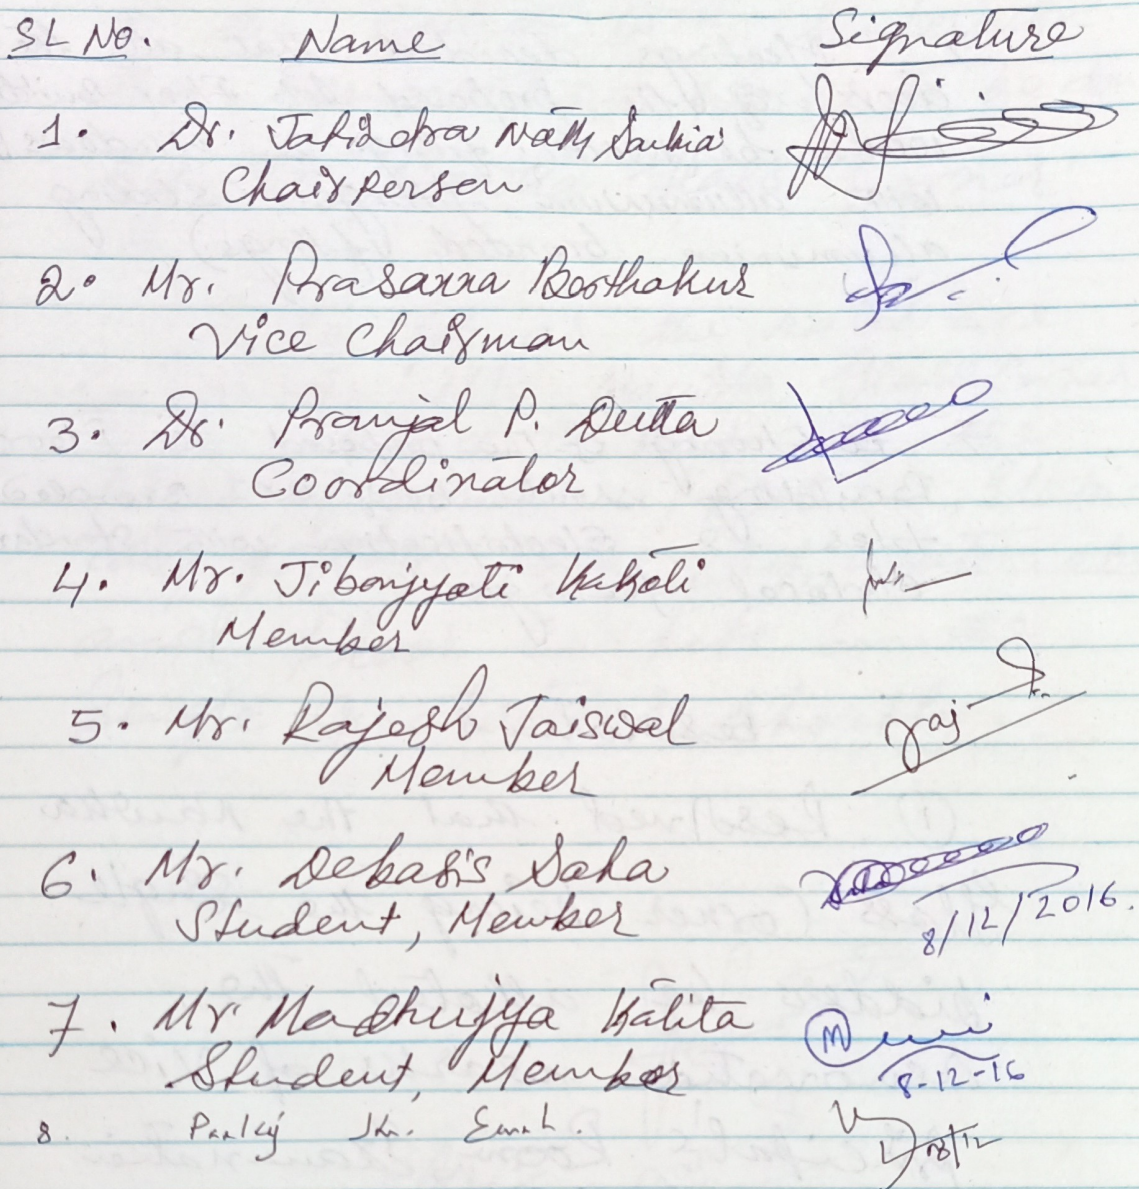 SL No. Name Signature
1. Dr. Jatindra Nath Saikia
Chairperson
2. Mr. Prasanna Borthakur
Vice Chairman
3. Dr. Pranjal P. Dutta
Coordinator
4. Mr. Jibonjyoti Kakoti
Member
5. Mr. Rajesh Jaiswal
Member
raj
6. Mr. Debasis Saha
Student, Member
8/12/2016.
7. Mr Madhujya Kalita
Student, Member
M
8-12-16
8. Pankaj Kr.
8/12